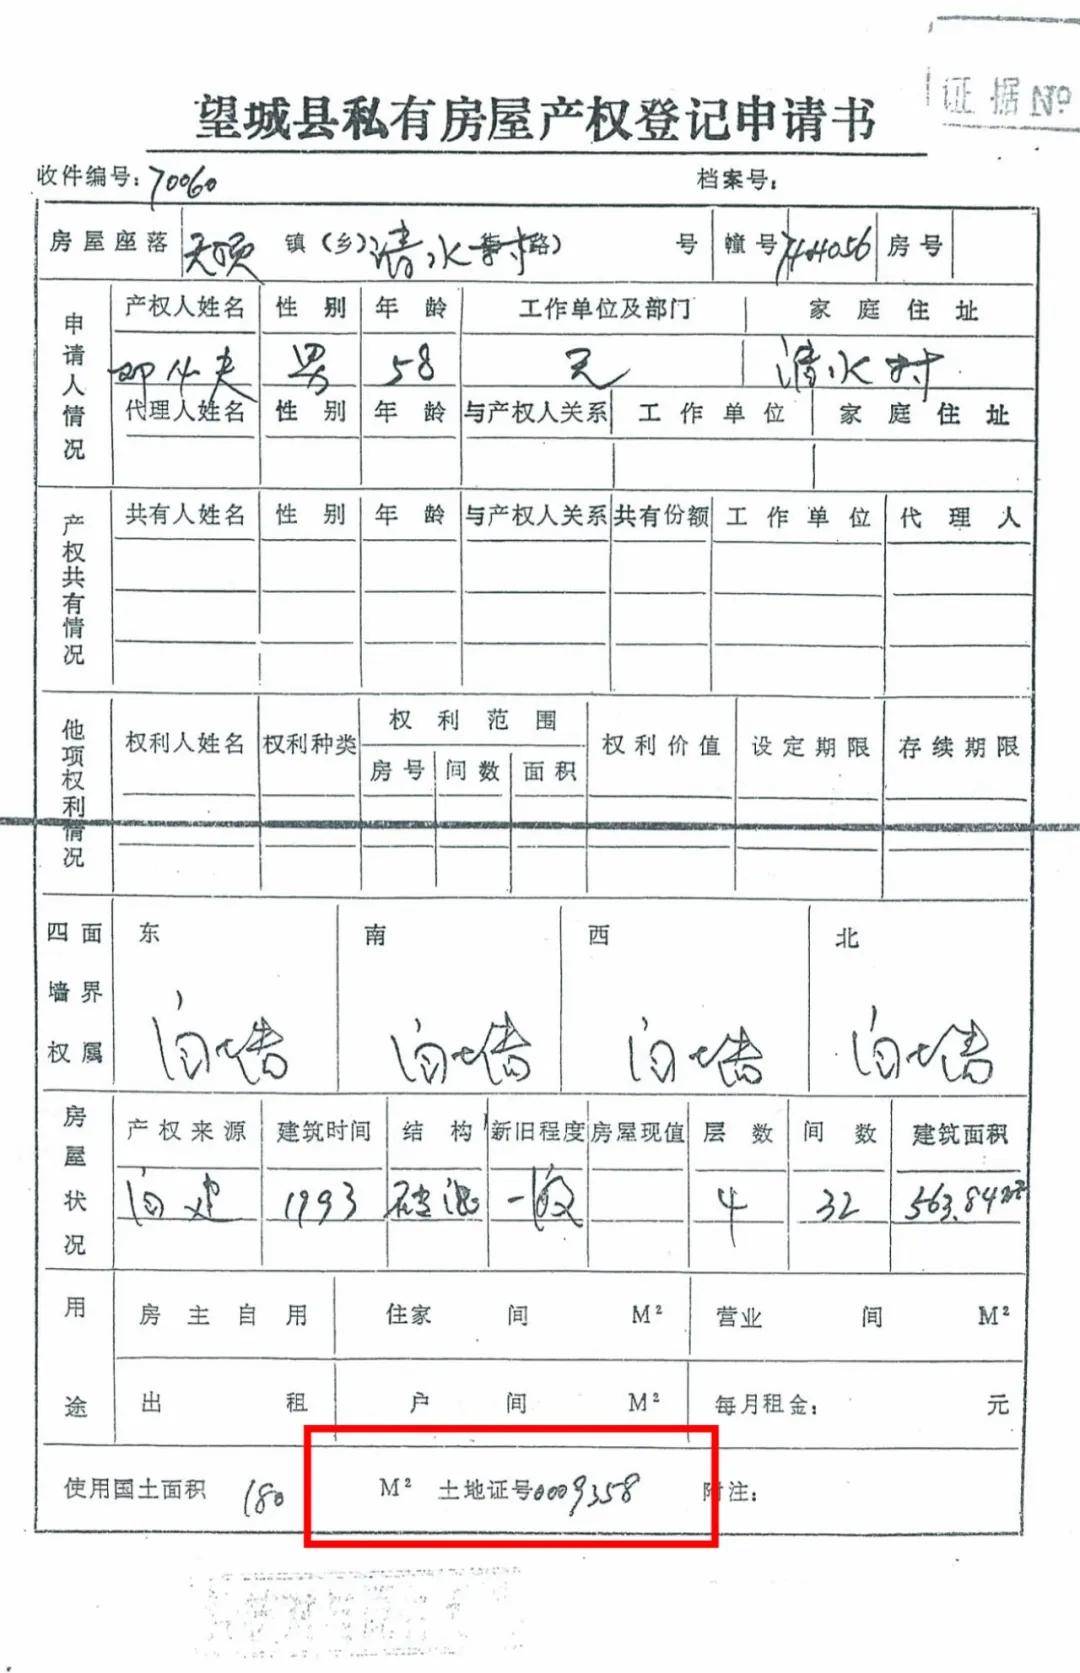 证据 №
望城县私有房屋产权登记申请书
收件编号：70060 档案号：
房屋座落 天顶 镇（乡）清水村 路） 号 幢号 7404056 房号
申请人情况 产权人姓名 性别 年龄 工作单位及部门 家庭住址
邓 夫 男 58 无 清水村
代理人姓名 性别 年龄 与产权人关系 工作单位 家庭住址
产权共有情况 共有人姓名 性别 年龄 与产权人关系 共有份额 工作单位 代理人
他项权利情况 权利人姓名 权利种类 权利范围 权利价值 设定期限 存续期限
房号 间数 面积
四面墙界权属 东 南 西 北
自墙 自墙 自墙 自墙
房屋状况 产权来源 建筑时间 结构 新旧程度 房屋现值 层数 间数 建筑面积
自建 1993 砖混 一般 4 32 563.84m²
用途 房主自用 住家 间 M² 营业 间 M²
出租 户 间 M² 每月租金： 元
使用国土面积 180 M² 土地证号0009358 附注：